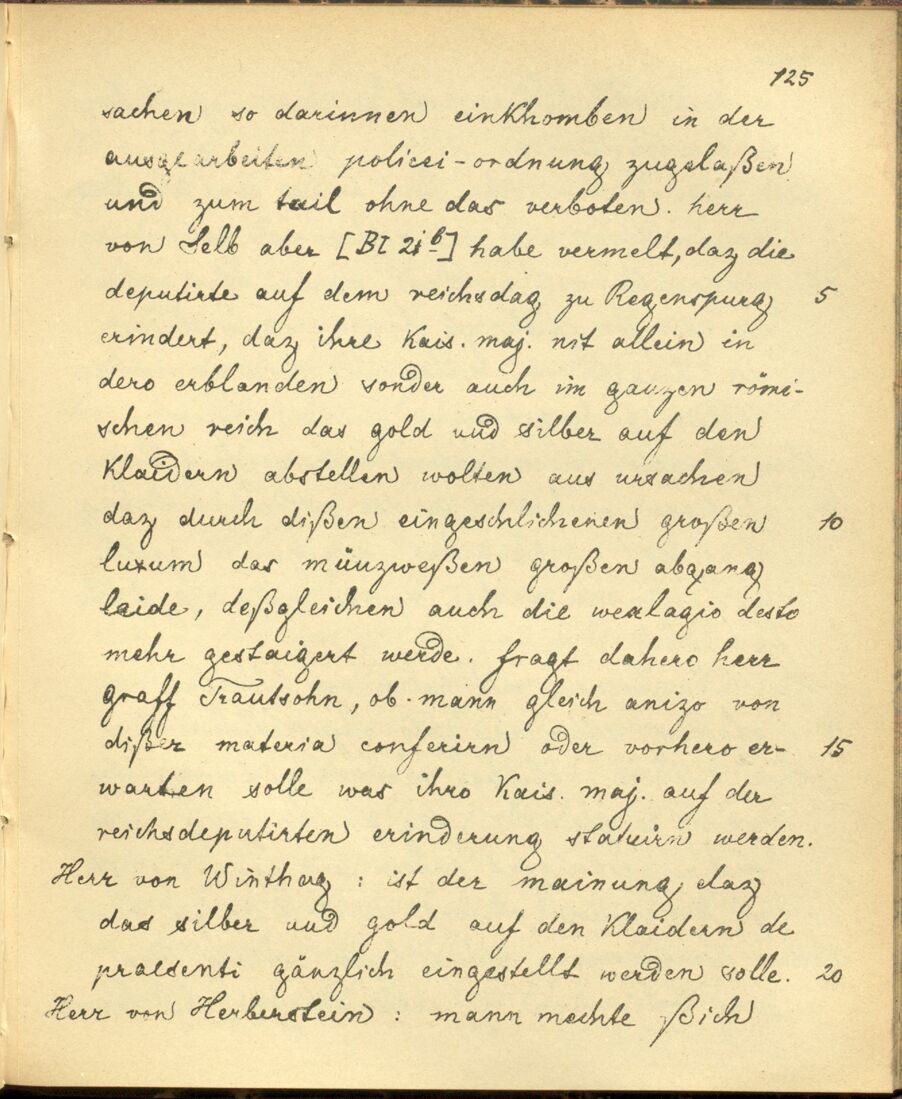 125
sachen so darinnen einkhomben in der
ausgearbeiten policei-ordnung zugelaßen
und zum tail ohne das verboten. herr
von Selb aber [Bl 21b] habe vermelt, daz die
deputirte auf dem reichsdag zu Regenspurg 5
erindert, daz ihre kais. maj. nit allein in
dero erblanden sonder auch im ganzen römi-
schen reich das gold und silber auf den
klaidern abstellen wolten aus ursachen
daz durch dißen eingeschlichenen großen 10
luxum das münzweßen großen abgang
laide, deßgleichen auch die wexlagio desto
mehr gestaigert werde. fragt dahero herr
graff Trautsohn, ob mann gleich anizo von
dißer materia conferirn oder vorhero er- 15
warten solle was ihro kais. maj. auf der
reichsdeputirten erinderung statuirn werden.
Herr von Winthag : ist der mainung daz
das silber und gold auf den klaidern de
praesenti gänzlich eingestellt werden solle. 20
Herr von Herberstein : mann mechte ßich